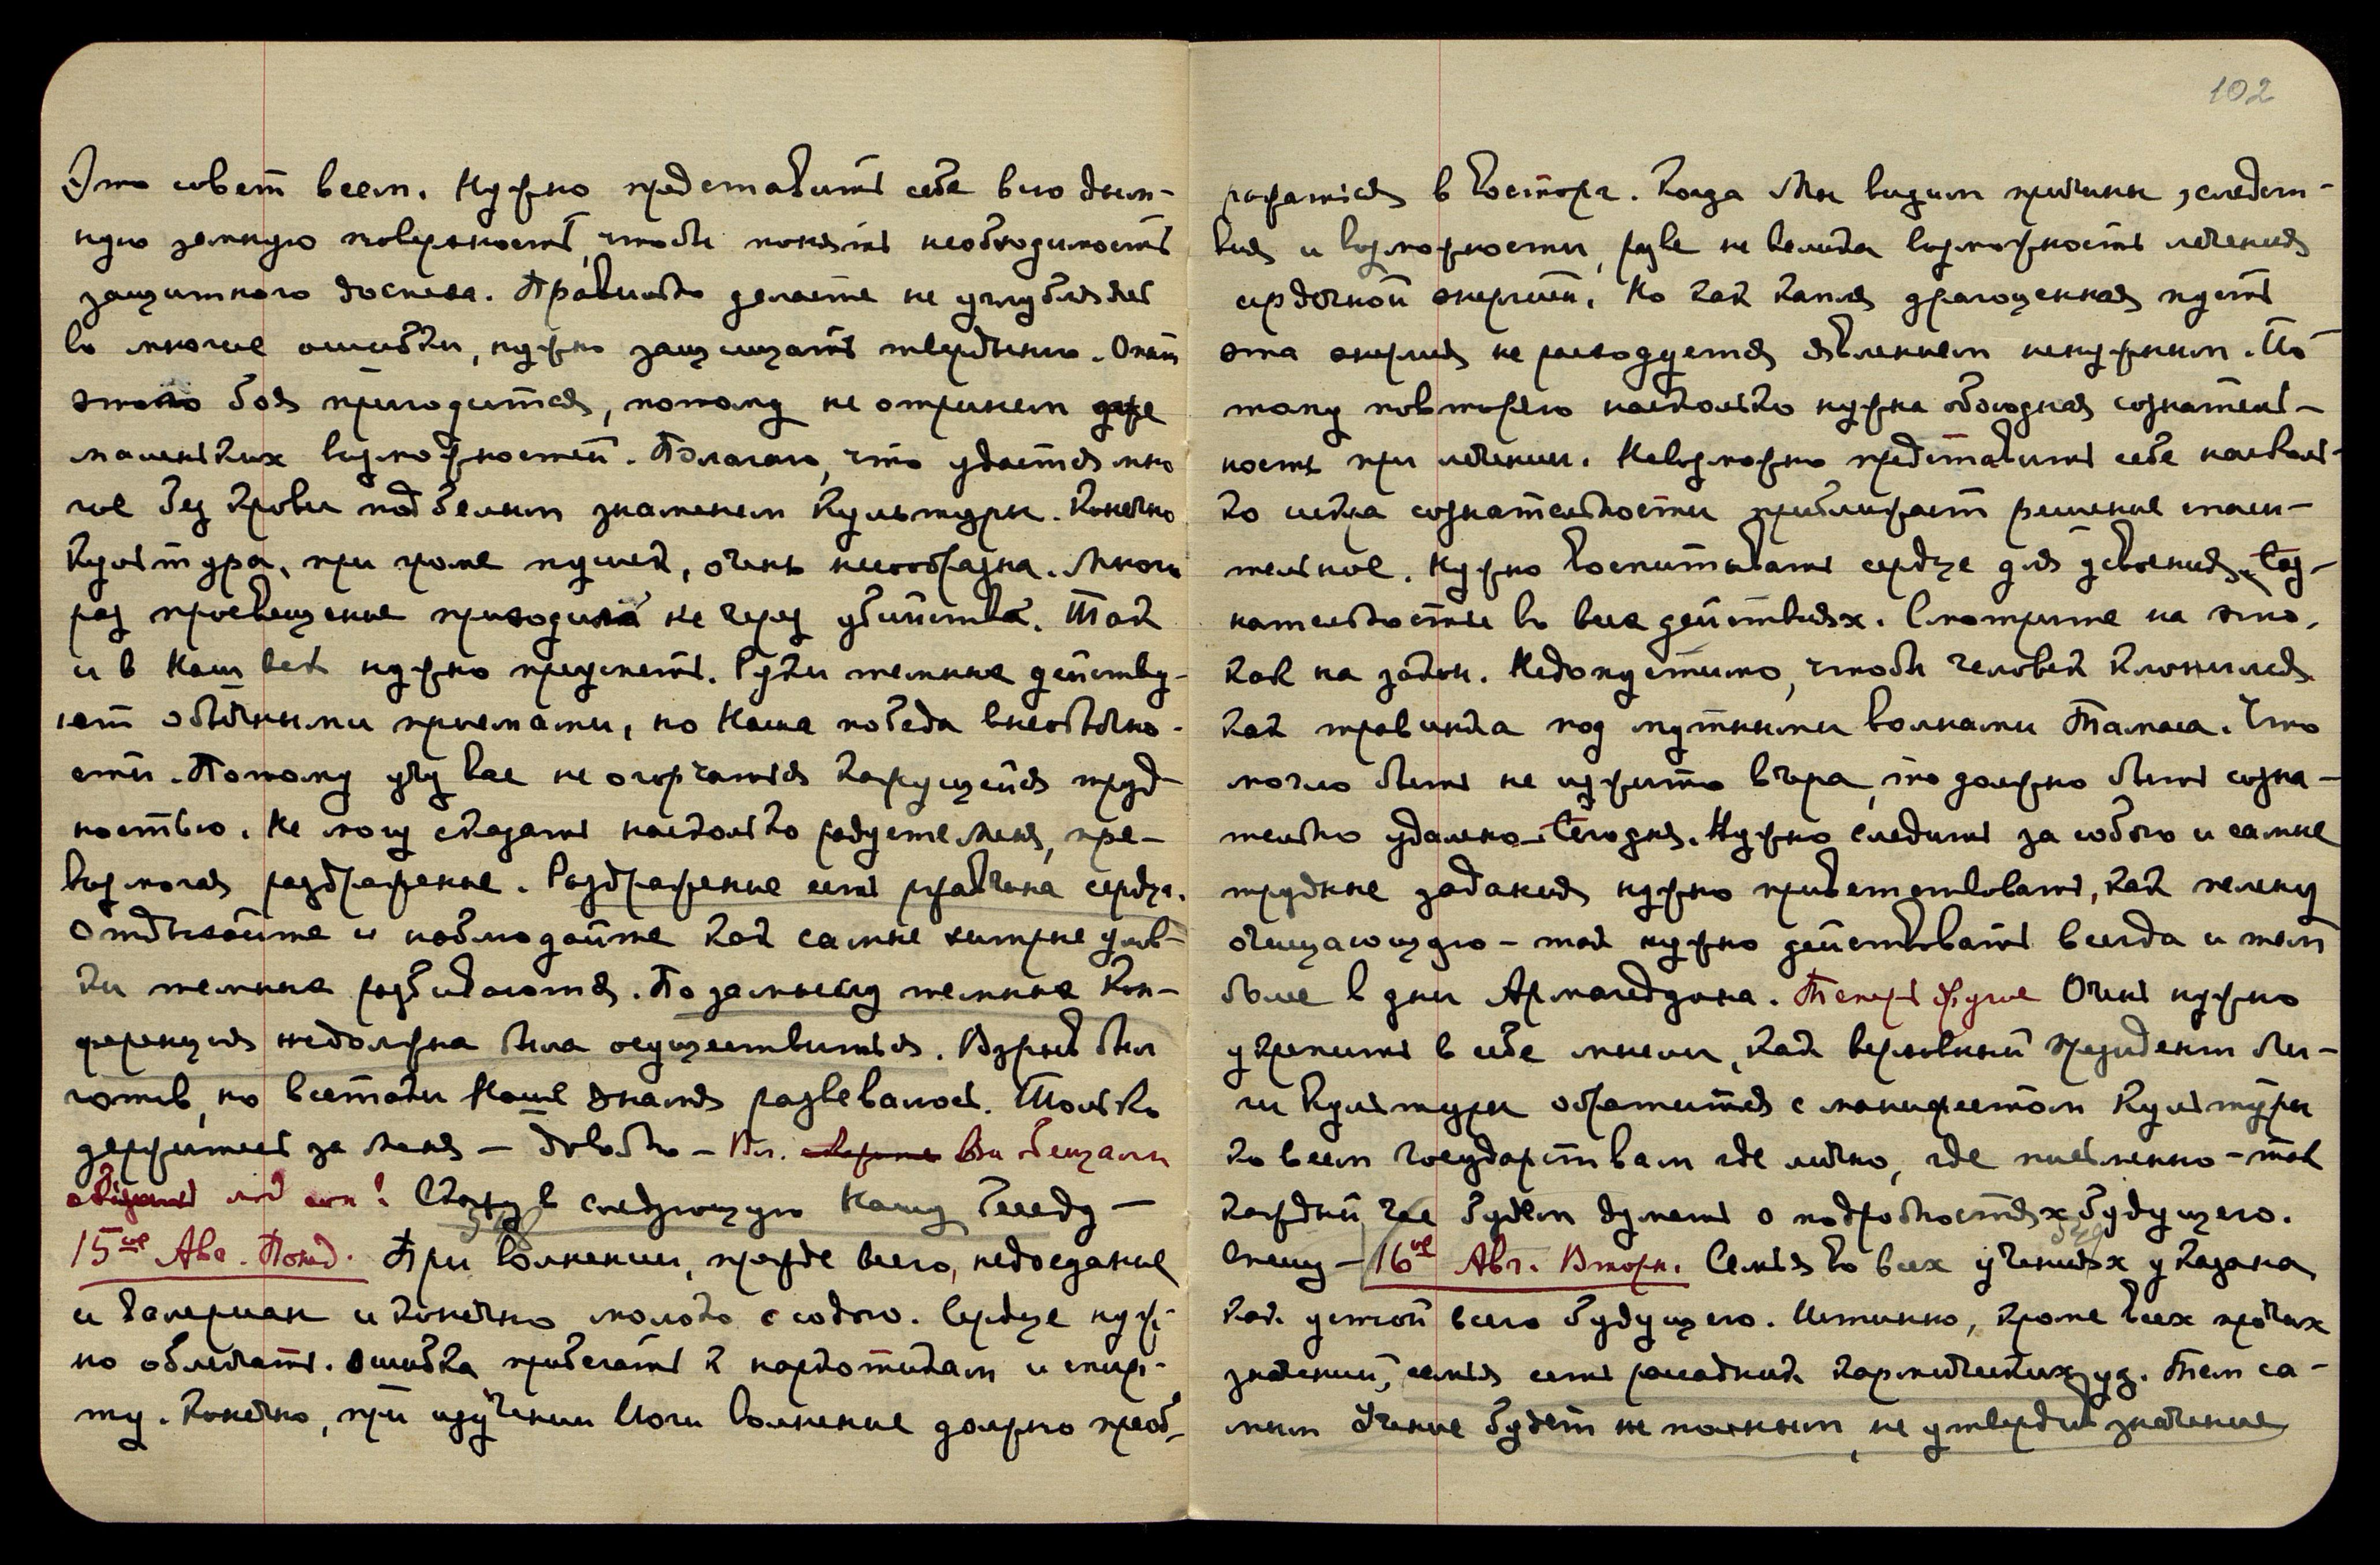 102
Это совет всем. Нужно представить себе всю дым-
ную земную поверхность, чтобы понять необходимость
защитного доспеха. Правильно делаете не углубляясь
во многие ошибки, нужно защищать твердыню. Опыт
этого боя пригодится, потому не отринем даже
маленьких возможностей. Полагаю, что удастся мно
гое без крови под Белым знаменем Культуры. Конечно
Культура, при громе пушек, очень несообразна. Много
раз просвещение приходило не через убийства. Так
и в Наш век нужно преуспеть. Руки темные действу-
ют обычными приемами, но Наша победа в необычно-
сти. Потому учу вас не огорчаться кажущейся труд-
ностью. Не могу сказать насколько радуете Меня, пре-
возмогая раздражение. Раздражение есть ржавчина сердца.
Отдыхайте и наблюдайте как самые хитрые улов-
ки темных разбиваются. По замыслу темных Кон-
ференция не должна была осуществиться. Взрыв был
готов, но всетаки Наше Знамя развевалось. Только
держитесь за Меня — довольно — Вл. Вы обещали
Скажу в следующую Нашу Беседу —
15ое Авг. Понед. При волнении, прежде всего, недоедание
и валериан и конечно молоко с содою. Сердце нуж-
но облегчать. Ошибка прибегать к наркотикам и спир-
ту. Конечно, при изучении Йоги волнение должно преоб-
ражаться в восторг. Когда Мы видим причины, следст-
вия и возможности, разве не велика возможность лечения
сердечной энергией. Но как капля драгоценная пусть
эта энергия не расходуется явлением ненужным. По
тому повторяю насколько нужна обоюдная сознатель-
ность при лечении. Невозможно представить себе насколь-
ко искра сознательности приближает решение спаси-
тельное. Нужно воспитывать сердце для усвоения Соз-
нательности во всех действиях. Смотрите на это,
как на закон. Недопустимо, чтобы человек клонился
как травинка под мутными волнами Тамаса. Что
могло быть не изжито вчера, то должно быть созна-
тельно удалено Сегодня. Нужно следить за собою и самые
трудные задания нужно приветствовать, как пелену
очищающую — так нужно действовать всегда и тем
более в дни Армагеддона. Теперь другое Очень нужно
укрепить в себе мысли, как верховный президент Ли-
ги Культуры обратится с манифестом Культуры
ко всем государствам где лично, где письменно — так
каждый час будем думать о подробностях будущего.
Спешу — 16ое Авг. Вторн. Семья во всех учениях указана
как устой всего будущего. Истинно, кроме всех прочих
значений, семья есть рассадник кармических уз. Тем са-
мым Учение будет не полным, не утвердив значение